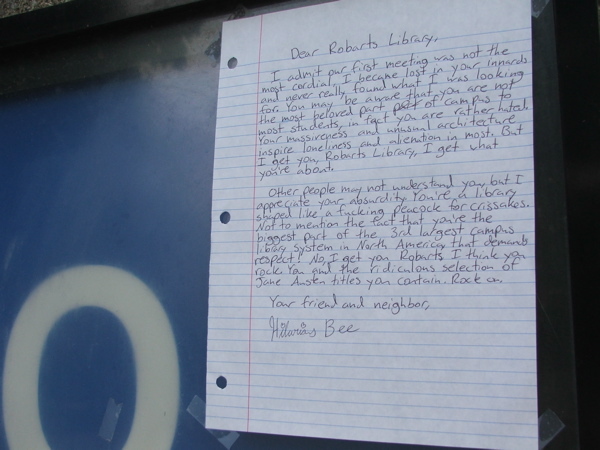 Dear Robarts Library,
I admit our first meeting was not the
most cordial, I became lost in your innards
and never really found what I was looking
for. You may be aware that you are not
the most beloved part part of campus to
most students, in fact you are rather hated.
Your massiveness and unusual architecture
inspire loneliness and alienation in most. But
I get you, Robarts Library, I get what
you're about.
Other people may not understand you, but I
appreciate your absurdity. You're a library
shaped like a fucking peacock for crissakes.
Not to mention the fact that you're the
biggest part of the 3rd largest campus
library system in North America, that demands
respect! No, I get you Robarts I think you
rock. You and the ridiculous selection of
Jane Austen titles you contain. Rock on.
Your friend and neighbor,
Hilarius Bee
O